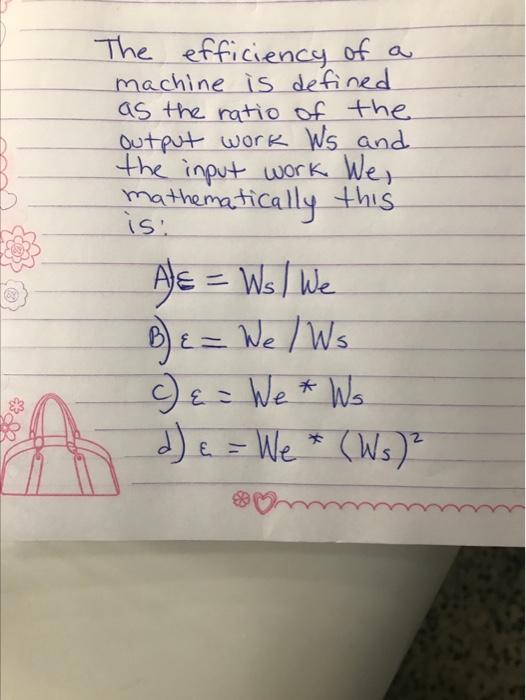 The efficiency of a
machine is defined
as the ratio of the
output work Ws and
the input work We,
mathematically this
is:
A) ε = Ws / We
B) ε = We / Ws
C) ε = We * Ws
d) ε = We * (Ws)²